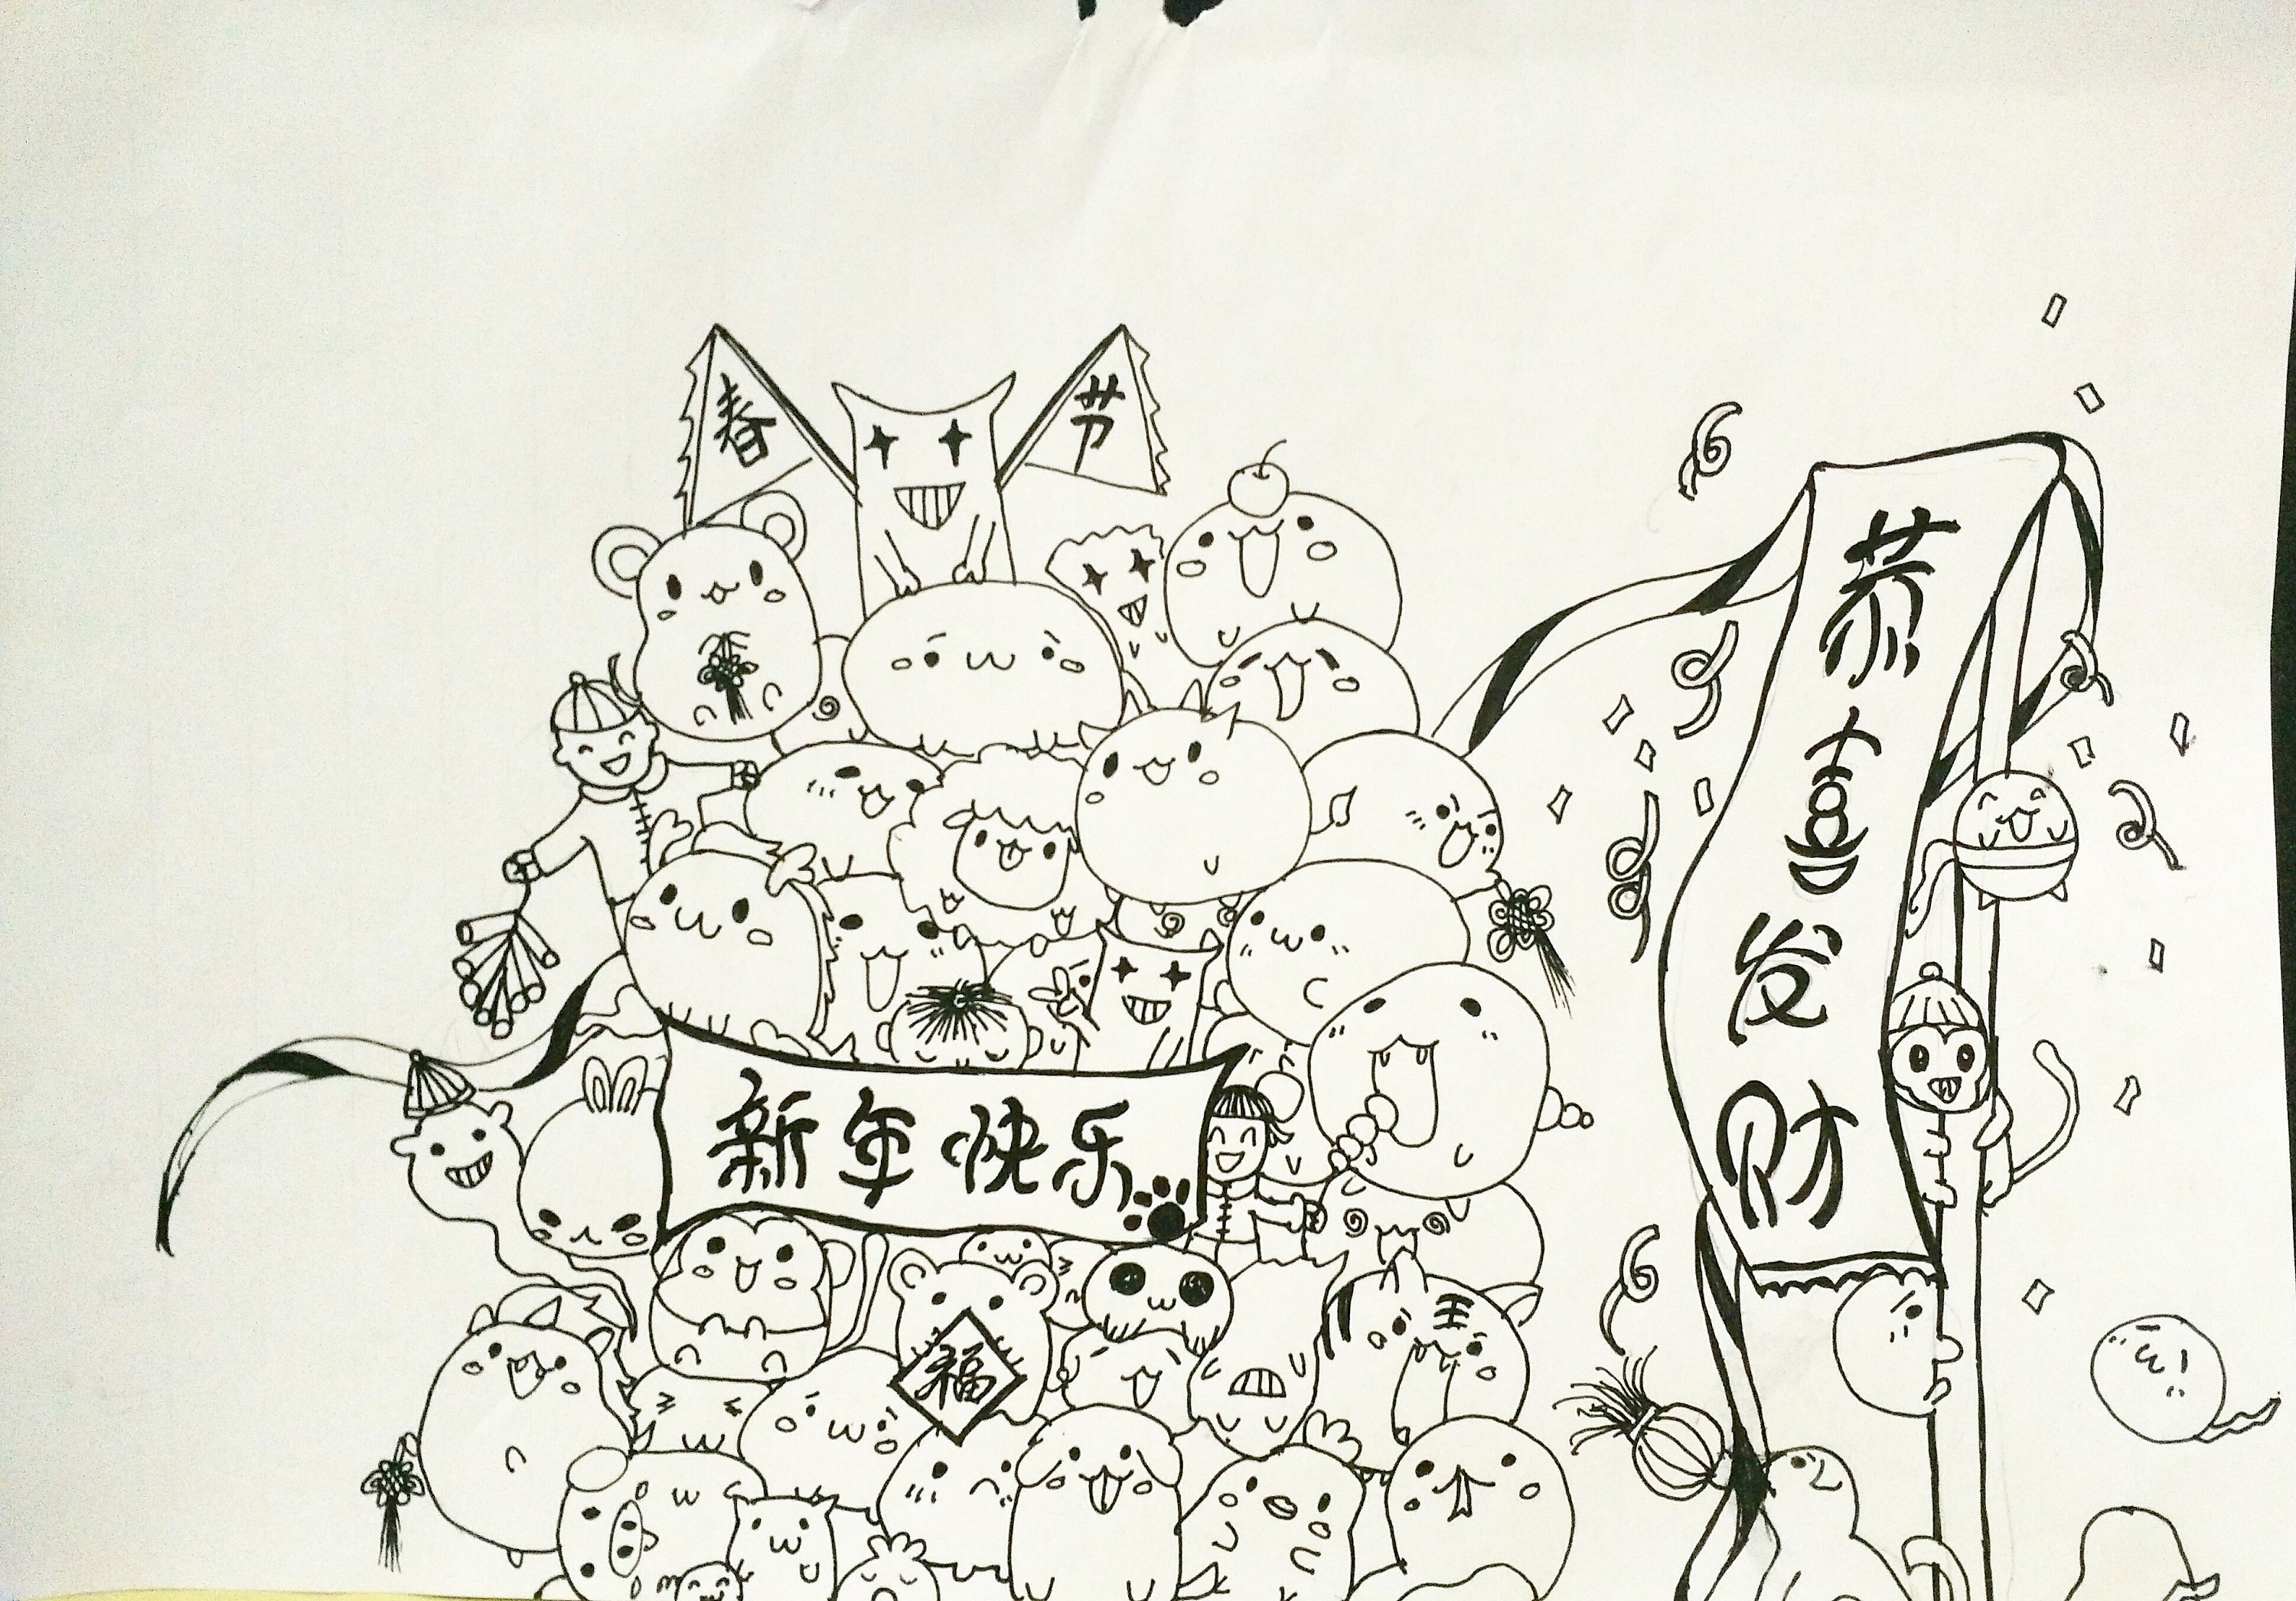 春节
恭喜发财
新年快乐
王
福